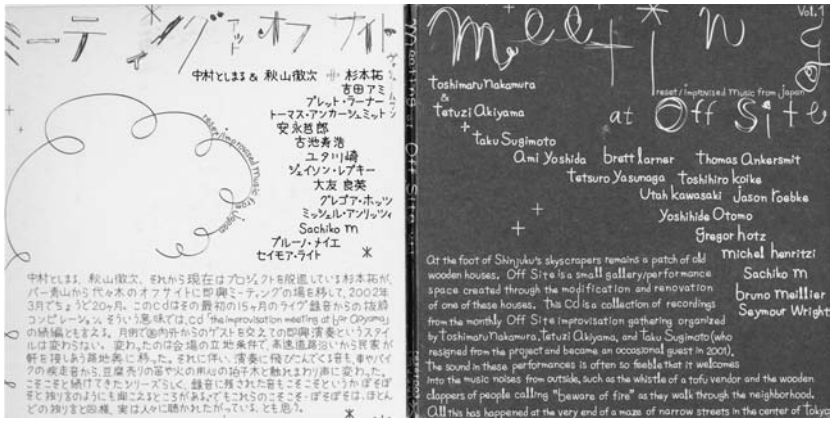 ミーティング アット オフ サイト
中村としまる & 秋山徹次 + 杉本拓
吉田アミ
ブレット・ラーナー
トーマス・アンカーシュミット
安永哲郎
古池寿浩
ユタ川崎
ジェイソン・レブキー
大友良英
グレゴア・ホッツ
ミッシェル・アンリッツィ
Sachiko M
ブルーノ・メイエ
セイモア・ライト
reset/improvised music from Japan
中村としまる、秋山徹次、それから現在はプロジェクトを脱退している杉本拓が、
バー青山から代々木のオフサイトに即興ミーティングの場を移して、2002年
3月でちょうど20ヶ月。このCDはその最初の15ヶ月のライヴ録音からの抜粋
コンピレーション。そういう意味では、CD「the improvisation meeting at bar aoyama」
の続編とも言える。月例で国内外からのゲストを交えての即興演奏というスタイ
ルは変わらない。変わったのは会場の立地条件で、高速道路沿いから民家が
軒を接しあう路地奥に移った。それに伴い、演奏に飛びこんでくる音も、車やバイ
クの疾走音から、豆腐売りの笛や火の用心の拍子木と触れまわり声に変わった。
こそこそと続けてきたシリーズらしく、録音に残された音もこそこそというかぼそぼ
そと独り言のようにも聞こえるところがある。でもこれらのこそこそ・ぼそぼそは、ほとん
どの独り言と同様、実は人々に聴かれたがっている、とも思う。
Meeting at Off Site
Vol.1
Meeting
reset/improvised music from Japan
at Off Site
Toshimaru Nakamura
&
Tetuzi Akiyama
+
Taku Sugimoto
Ami Yoshida brett larner Thomas Ankersmit
Tetsuro Yasunaga Toshihiro Koike
Utah Kawasaki Jason Roebke
Yoshihide Otomo
Gregor hotz
michel henritzi
Sachiko M
bruno meillier
Seymour Wright
At the foot of Shinjuku's skyscrapers remains a patch of old
wooden houses. Off Site is a small gallery/performance
space created through the modification and renovation
of one of these houses. This CD is a collection of recordings
from the monthly Off Site improvisation gathering organized
by Toshimaru Nakamura, Tetuzi Akiyama, and Taku Sugimoto (who
resigned from the project and became an occasional guest in 2001).
The sound in these performances is often so feeble that it welcomes
into the music noises from outside, such as the whistle of a tofu vendor and the wooden
clappers of people calling "beware of fire" as they walk through the neighborhood.
All this has happened at the very end of a maze of narrow streets in the center of Tokyo